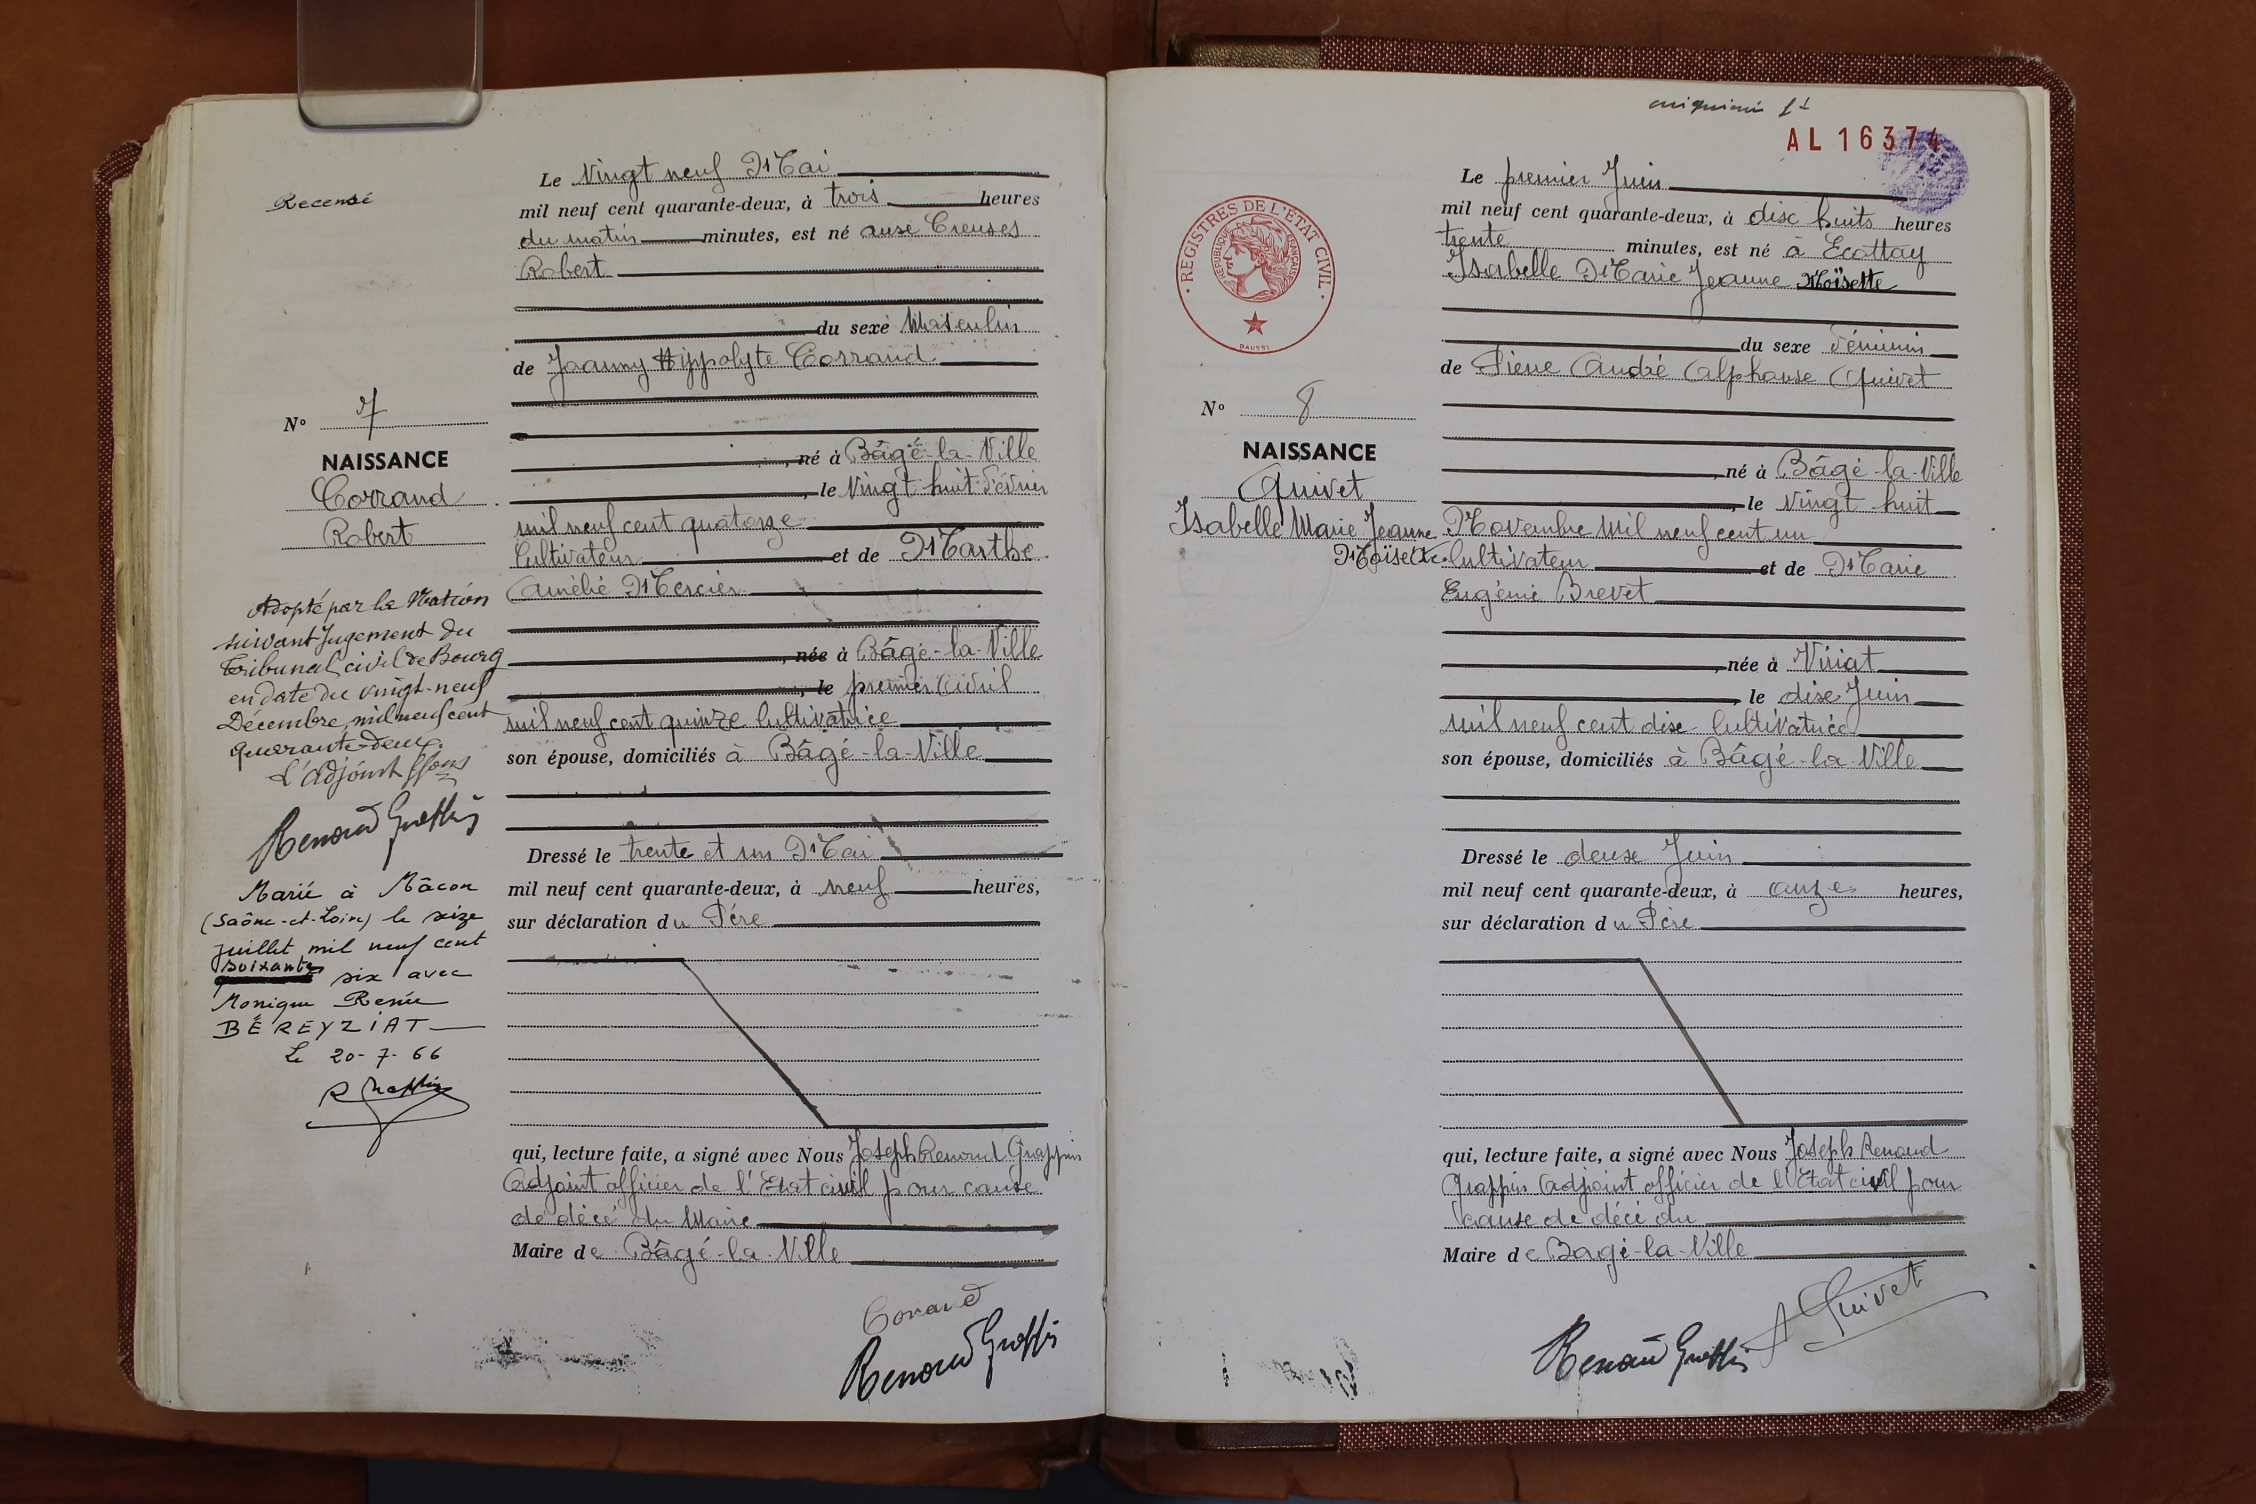 Recensé
Le Vingt neuf Mai
mil neuf cent quarante-deux, à trois heures
du matin minutes, est né aux Creuses
Robert
du sexe Masculin
de Joanny Hippolyte Corrand
né à Bâgé-la-Ville
, le Vingt huit Février
mil neuf cent quatorze
Cultivateur et de Marthe
Amélie Mercier
, née à Bâgé-la-Ville
, le premier Avril
mil neuf cent quinze Cultivatrice
son épouse, domiciliés à Bâgé-la-Ville
Dressé le trente et un Mai
mil neuf cent quarante-deux, à neuf heures,
sur déclaration du Père
qui, lecture faite, a signé avec Nous Joseph Renoud Grappin
Adjoint officier de l'Etat civil pour cause
de décé du Maire
Maire de Bâgé-la-Ville
Corrand
Renoud Grappin
No 7
NAISSANCE
Corrand
Robert
Adopté par la Nation
suivant Jugement du
Tribunal civil de Bourg
en date du vingt-neuf
Décembre mil neuf cent
quarante-deux.
L'Adjoint
Renoud Grappin
Marié à Mâcon
(Saône-et-Loire) le seize
juillet mil neuf cent
soixante
six avec
Monique Renée
BÉREYZIAT
Le 20-7-66
R Grappin
AL 16374
REGISTRES DE L'ETAT CIVIL
REPUBLIQUE FRANÇAISE
DAUSSI
Le premier Juin
mil neuf cent quarante-deux, à dix huits heures
trente minutes, est né à Ecottay
Isabelle Marie Jeanne Moïsette
du sexe Féminin
de Pierre André Alphonse Quivet
, né à Bâgé-la-Ville
, le Vingt huit
Novembre mil neuf cent un
Cultivateur et de Marie
Eugénie Brevet
, née à Viriat
, le dix Juin
mil neuf cent dix Cultivatrice
son épouse, domiciliés à Bâgé-la-Ville
Dressé le deux Juin
mil neuf cent quarante-deux, à onze heures,
sur déclaration du Père
qui, lecture faite, a signé avec Nous Joseph Renoud
Grappin Adjoint officier de l'Etat civil pour
cause de décé du
Maire de Bagé-la-Ville
A Quivet
Renoud Grappin
No 8
NAISSANCE
Quivet
Isabelle Marie Jeanne
Moïsette